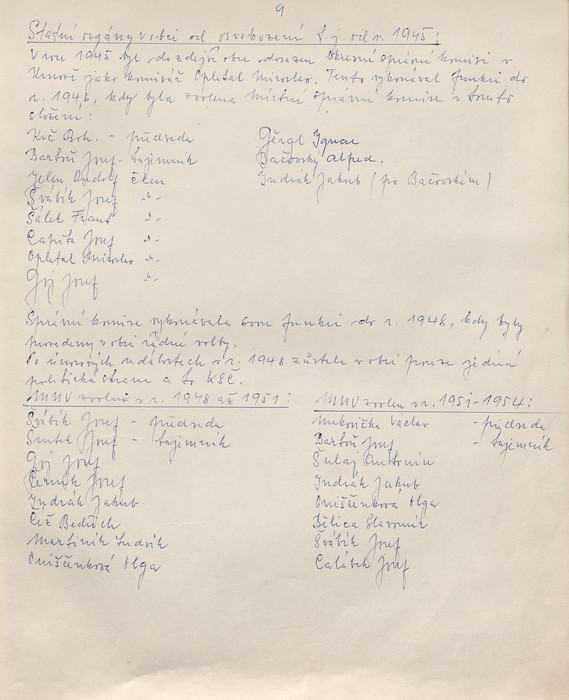 9
Státní orgány v obci od osvobození t. j. od r. 1945:
V roce 1945 byl do zdejší obce dosazen okresní správní komisí v
Krnově jako komisář Opletal Miroslav. Tento vykonával funkci do
r. 1946, kdy byla zvolena místní správní komise v tomto
složení:
Kvč Boh. - předseda
Bartoš Josef - tajemník
Jelen Rudolf člen
Švábík Josef -"-
Šálek Frant -"-
Capita Josef -"-
Opletal Miroslav -"-
Goj Josef -"-
Gergl Ignac
Bačovský Alfred.
Indrák Jakub (po Bačovském)
Správní komise vykonávala svou funkci do r. 1948, kdy byly
provedeny v obci řádné volby.
Po únorových událostech v r. 1948 zůstala v obci pouze jediná
politická strana a to KSČ.
MNV zvolené v r. 1948 až 1951:
Švábík Josef - předseda
Smtek Josef - tajemník
Goj Josef
Černík Josef
Indrák Jakub
Číž Bedřich
Martiník Ludvík
Oniščenková Olga
MNV zvolen v r. 1951-1954:
Mukařička Václav - předseda
Bartoš Josef - tajemník
Šulaj Antonín
Indrák Jakub
Oniščenková Olga
Bělica Slavomír
Švábík Josef
Calábek Josef